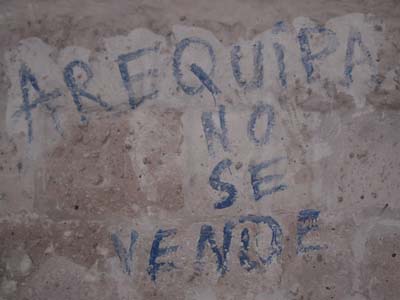 AREQUIPA
NO
SE
VENDE